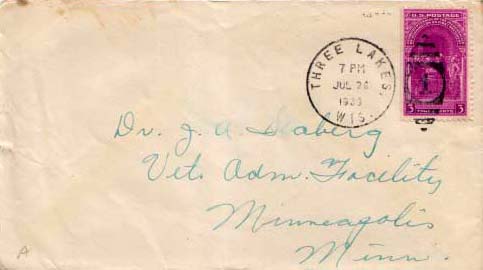 U.S. POSTAGE
3 THREE CENTS 3
THREE LAKES,
7 PM
JUL 26
1939
WIS.
Dr. J. A. Seaberg
Vet. Adm. Facility
Minneapolis
Minn.
A